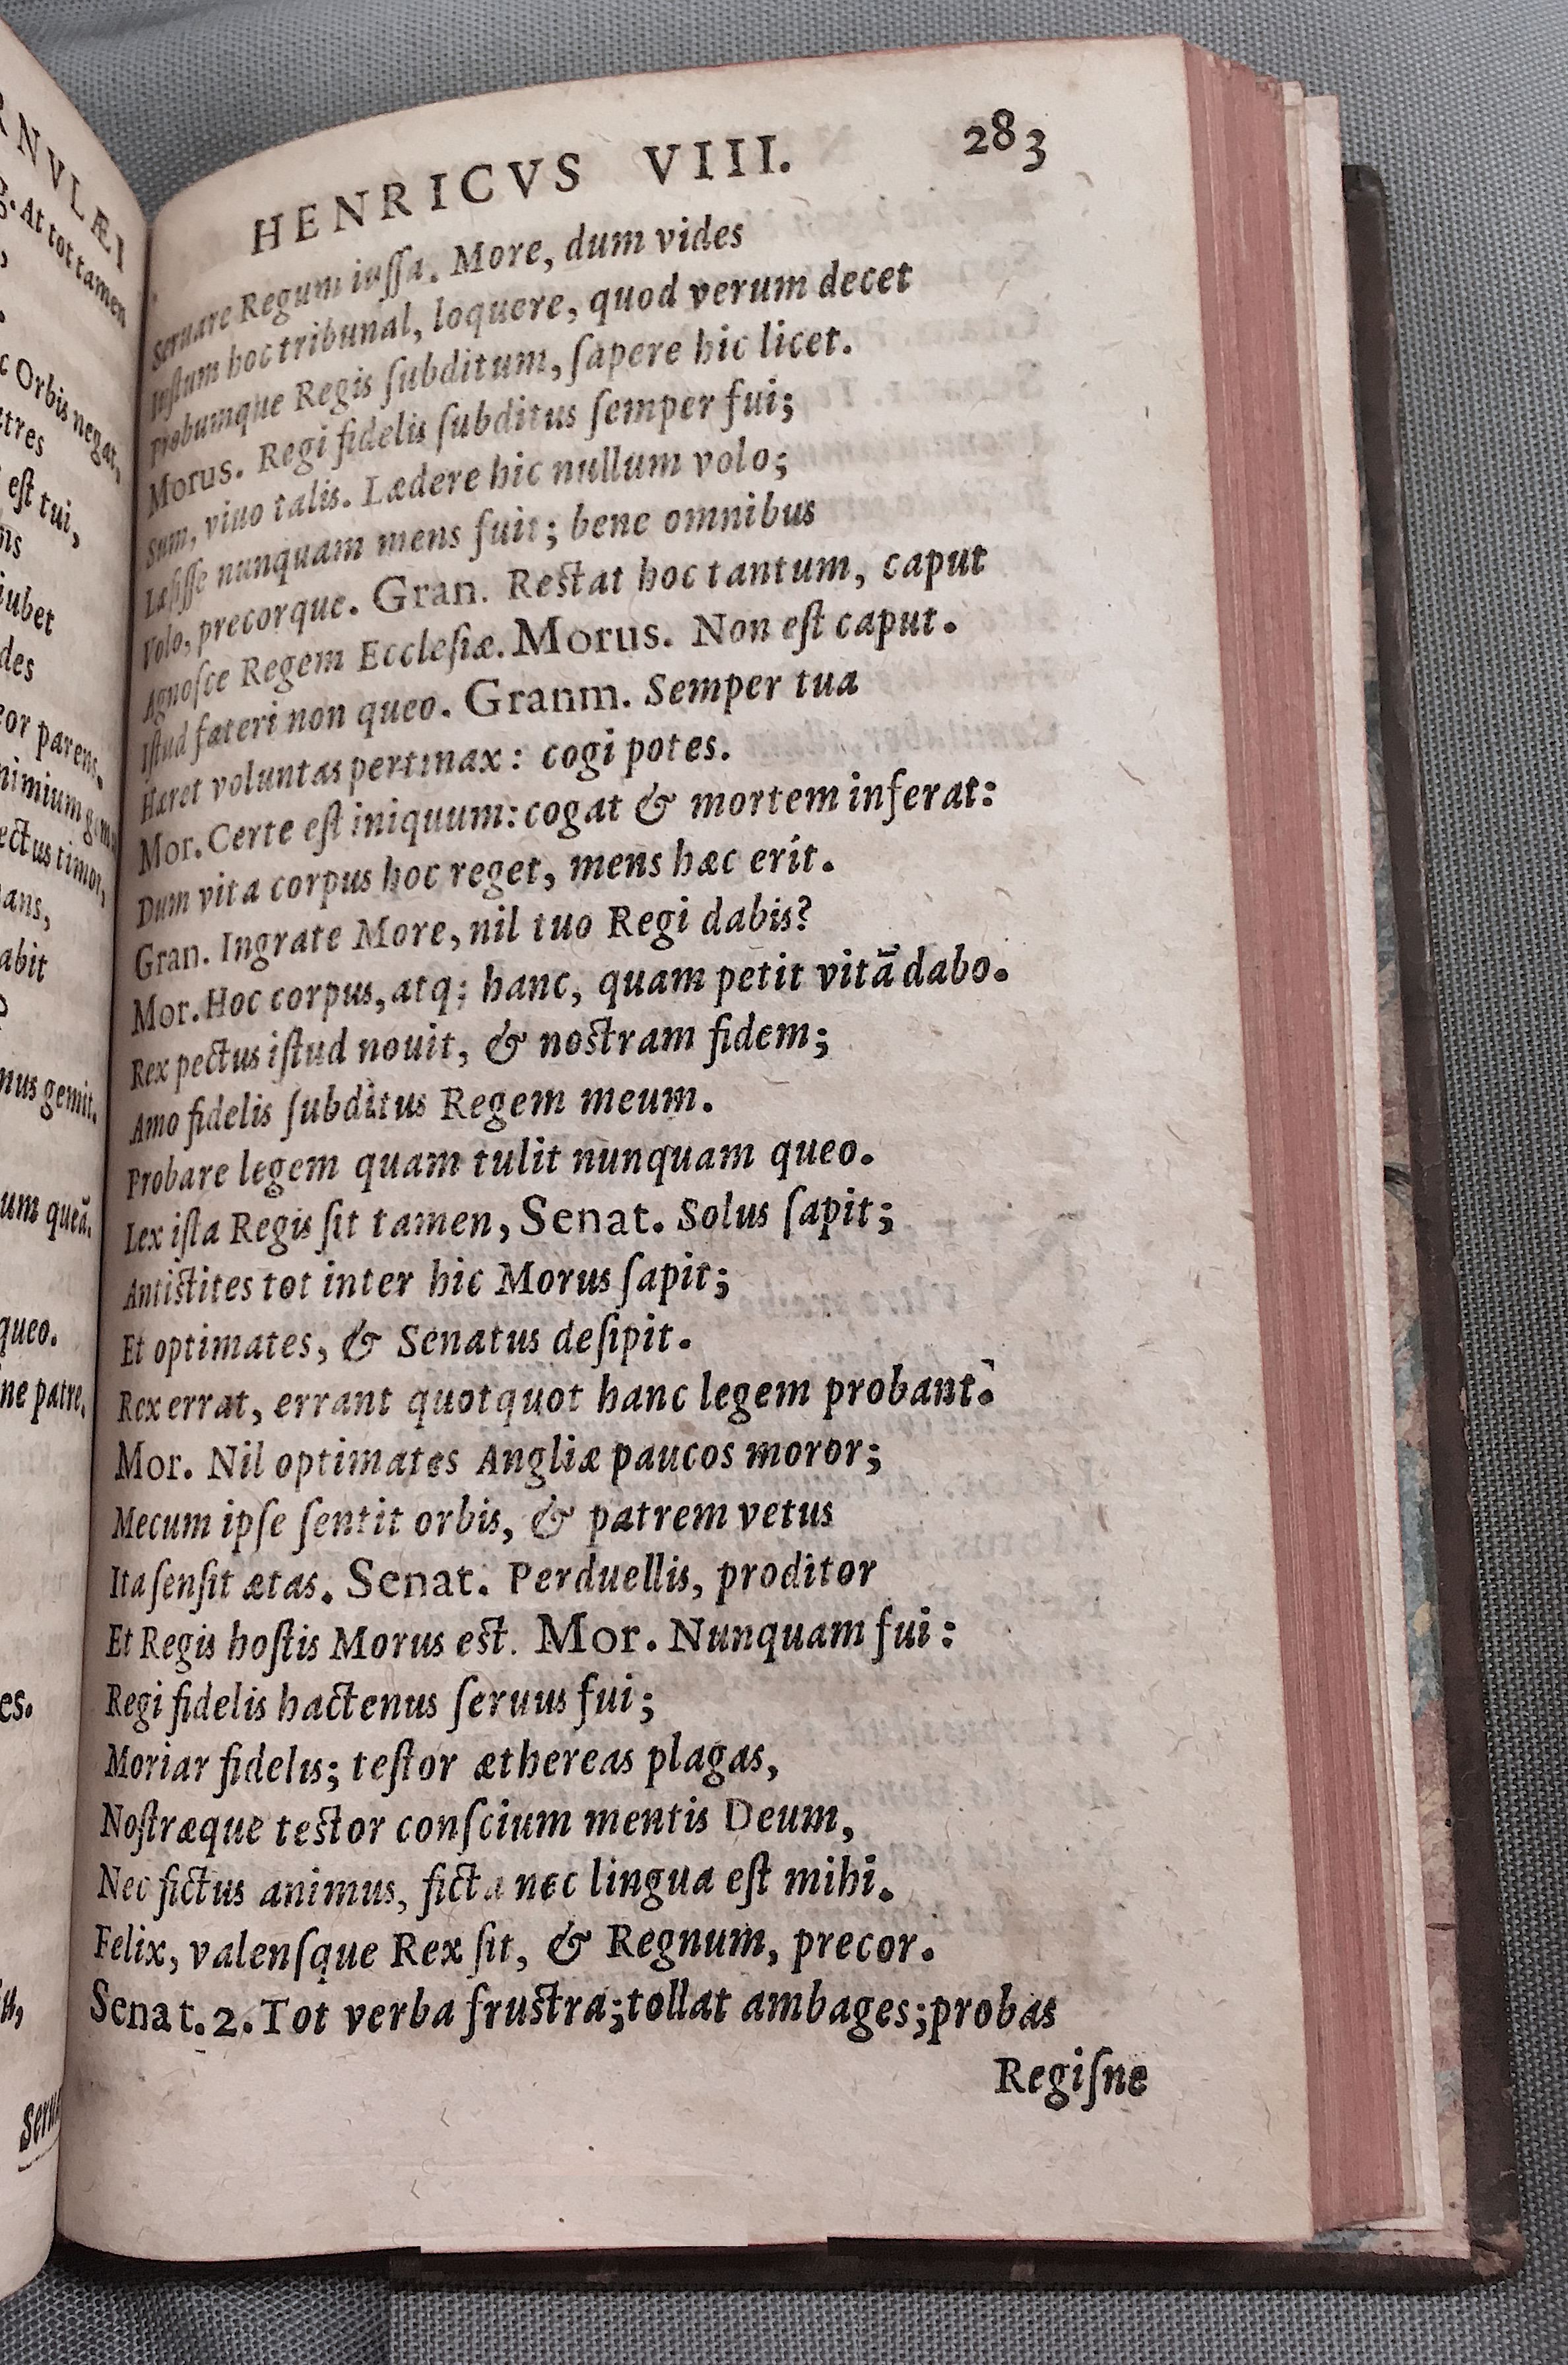 RNVLÆI
g. At tot tamen
c Orbis negat,
tres
est tui,
ns
iubet
des
eor parens.
nimium
ectus timor,
ans,
abit
nus gemit.
um queã.
queo.
ne patre.
es.
HENRICVS VIII. 283
seruare Regum iuſſa. More, dum vides
Iuſtum hoc tribunal, loquere, quod verum decet
Probumque Regis ſubditum, ſapere hic licet.
Morus. Regi fidelis ſubditus ſemper fui;
Sum, viuo talis. Lædere hic nullum volo;
Læſiſſe nunquam mens fuit; bene omnibus
Volo, precorque. Gran. Reſtat hoc tantum, caput
Agnoſce Regem Eccleſiæ. Morus. Non eſt caput.
Iſtud fateri non queo. Granm. Semper tua
Hæret voluntas pertinax: cogi potes.
Mor. Certe eſt iniquum: cogat & mortem inferat:
Dum vita corpus hoc reget, mens hæc erit.
Gran. Ingrate More, nil tuo Regi dabis?
Mor. Hoc corpus, atq; hanc, quam petit vitã dabo.
Rex pectus iſtud nouit, & noſtram fidem;
Amo fidelis ſubditus Regem meum.
Probare legem quam tulit nunquam queo.
Lex iſta Regis ſit tamen, Senat. Solus ſapit;
Antiſtites tot inter hic Morus ſapit;
Et optimates, & Senatus deſipit.
Rex errat, errant quotquot hanc legem probant.
Mor. Nil optimates Angliæ paucos moror;
Mecum ipſe ſentit orbis, & patrem vetus
Ita ſenſit ætas. Senat. Perduellis, proditor
Et Regis hoſtis Morus eſt. Mor. Nunquam fui:
Regi fidelis hactenus ſeruus fui;
Moriar fidelis; teſtor æthereas plagas,
Noſtræque teſtor conſcium mentis Deum,
Nec fictus animus, ficta nec lingua eſt mihi.
Felix, valenſque Rex ſit, & Regnum, precor.
Senat. 2. Tot verba fruſtra; tollat ambages; probas
Regiſne